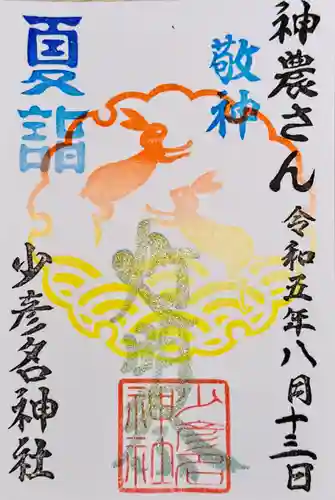 神農さん 令和五年八月十三日
敬神
夏詣
灯明
少彦名神社
少彦名
神社